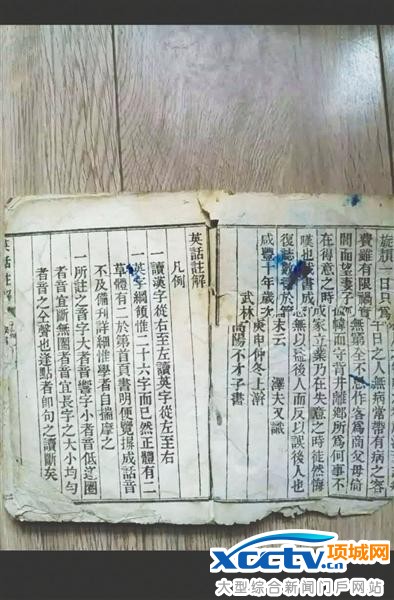 一日只爲千日之人無病常帶有病之容
費雖有限禍實無窮第全不作客爲商父母倚
閭而望妻子幃而守背井離鄉所爲何事不
在得意之時成家立業乃在失意之時徒然悔
嘆也茲書成無以惑後人而反以誤後人也
復誌數字於末云 澤夫又識
咸豐十年歲次庚申仲冬上澣
武林高陽不才子書
英話註解
凡例
一讀漢字從右至左讀英字從左至右
一英字綱領惟二十六字而已然正體有二
草體有二於第首頁書明便覽揖成話音
不及備刊詳細惟學者自揣摩之
一所註之音字大者音響字小者音低逕圈
者音宜斷無圈者音宜長字之大小均勻
者音之仝聲也逢點者卽句之讀斷矣
英話註解
xcctv.cn 项城网
大型·综合·新闻门户网站